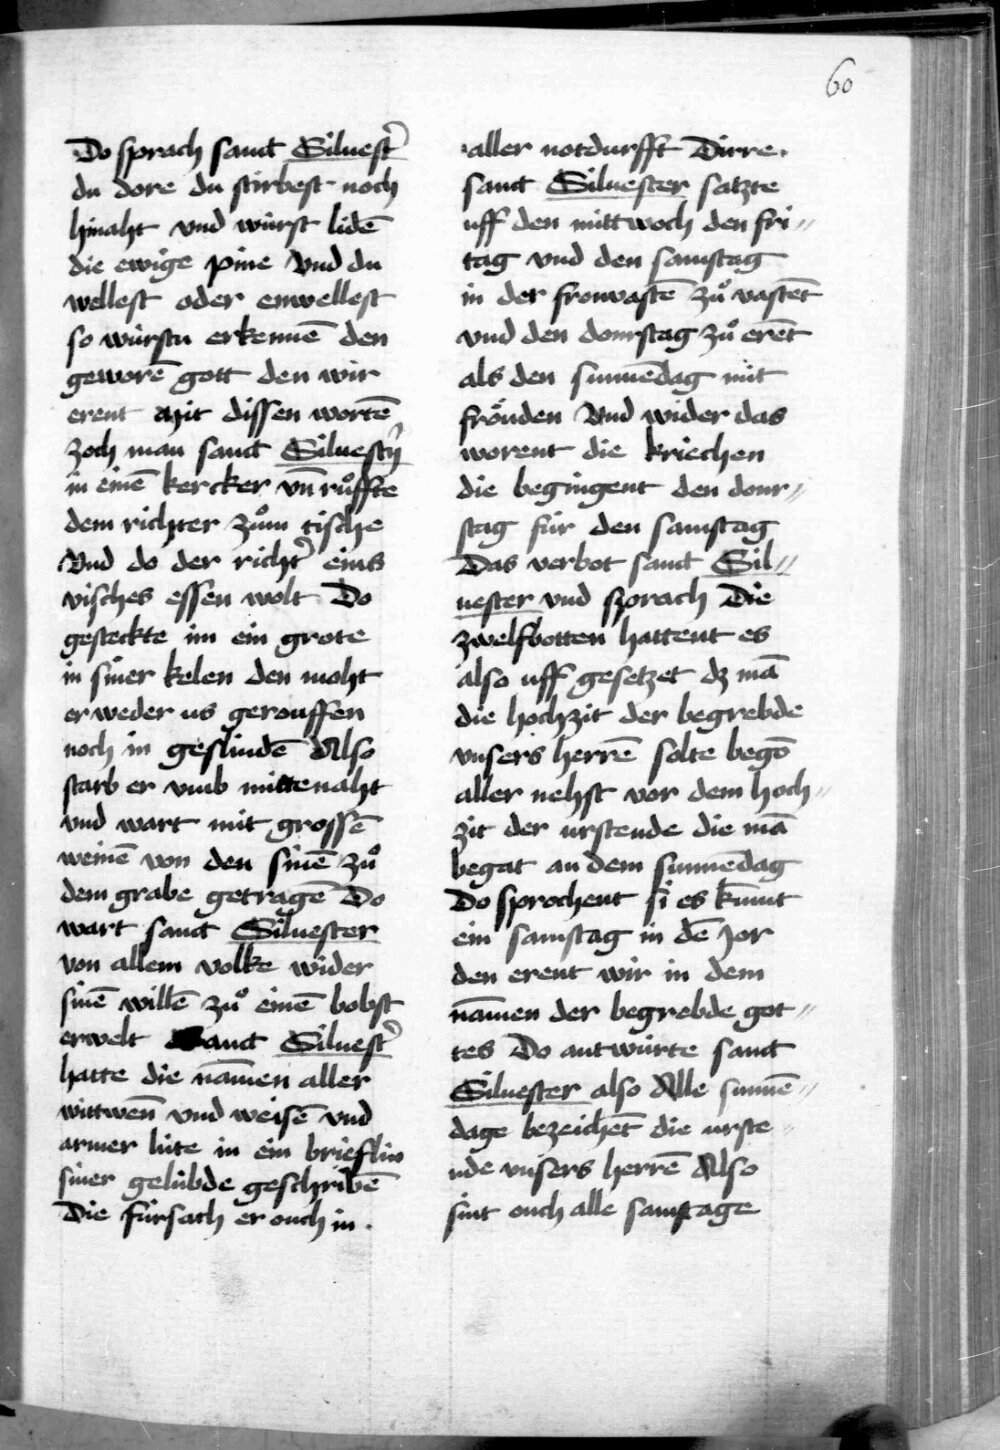 60
Do sprach sanct Siluest᷑
du dore du stirbest noch
hinaht vnd würst lidē
die ewige pine Vnd du
wellest oder enwellest
so würstu erkennē den
geworē gott den wir
erent Mit dissen wortē
zoch man sanct Siluestrū
in einē kercker vn̄ růffte
dem richter zům tische
Vnd do der richt᷑ eins
visches essen wolt Do
gesteckte im ein grote
in siner kelen den moht
er weder us gerouffen
noch in geslindē Also
starb er vmb mittenaht
vnd wart mit grossē
weinē von den sinē zů
dem grabe getragē Do
wart sanct Siluester
von allem volke wider
sinē willē zů einē bobst
erwelt Sanct Siluest᷑
hatte die nāmen aller
wittwen̄ vnd weisē vnd
armer lüte in ein brieflin
siner gelübde geschribē
Die fürsach er ouch in
aller notdurfft Dirre
sanct Siluester satzte
uff den mittwoch den fri〃
tag vnd den samstag
in der fronvastē zů vastēt
vnd den donrstag zů erēt
als den sunnēdag mit
fröuden Vnd wider das
worent die kriechen
die begingent den donr〃
stag für den samstag
Das verbot sanct Sil〃
uester vnd sprach Die
zwelfbotten hattent es
also uff gesetzet dz mā
die hochzit der begrebde
vnsers herrē solte begō
aller nehst vor dem hoch〃
zit der urstende die mā
begat an dem sunnēdag
Do sprochent si es kūmt
ein samstag in dē Jor
den erent wir in dem
nāmen der begrebde got〃
tes Do antwürte sanct
Siluester also Alle sunnē〃
dage bezeichēt die urste〃
nde vnsers herrē Also
sint ouch alle samstage